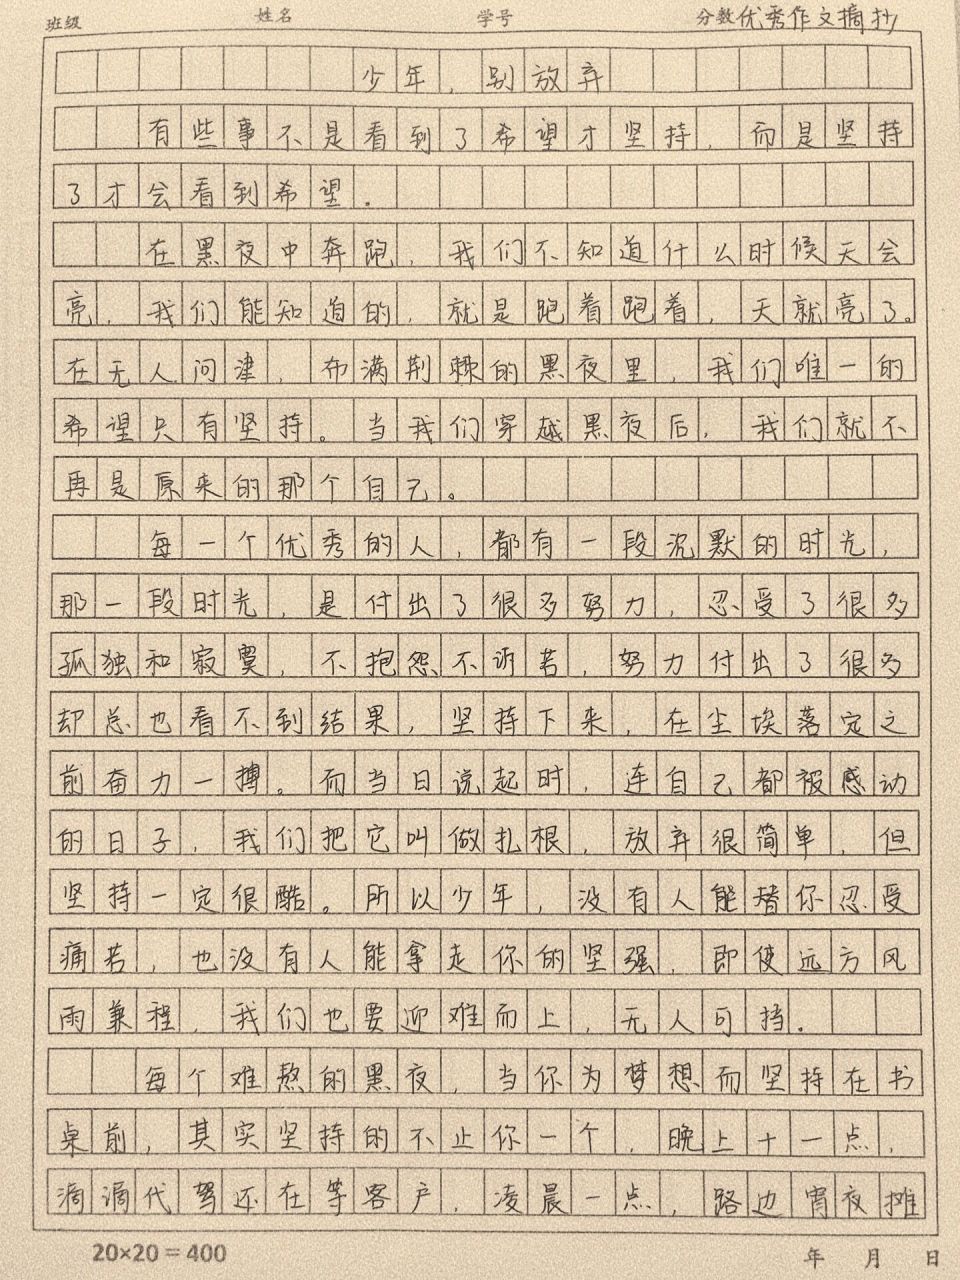 班级 姓名 学号 分数 优秀作文摘抄
少年，别放弃
有些事不是看到了希望才坚持，而是坚持
了才会看到希望。
在黑夜中奔跑，我们不知道什么时候天会
亮，我们能知道的，就是跑着跑着，天就亮了。
在无人问津，布满荆棘的黑夜里，我们唯一的
希望只有坚持。当我们穿越黑夜后，我们就不
再是原来的那个自己。
每一个优秀的人，都有一段沉默的时光，
那一段时光，是付出了很多努力，忍受了很多
孤独和寂寞，不抱怨不诉苦，努力付出了很多
却总也看不到结果，坚持下来，在尘埃落定之
前奋力一搏。而当日说起时，连自己都被感动
的日子，我们把它叫做扎根，放弃很简单，但
坚持一定很酷。所以少年，没有人能替你忍受
痛苦，也没有人能拿走你的坚强，即使远方风
雨兼程，我们也要迎难而上，无人可挡。
每个难熬的黑夜，当你为梦想而坚持在书
桌前，其实坚持的不止你一个，晚上十一点，
滴滴代驾还在等客户，凌晨一点，路边宵夜摊
20×20＝400 年 月 日